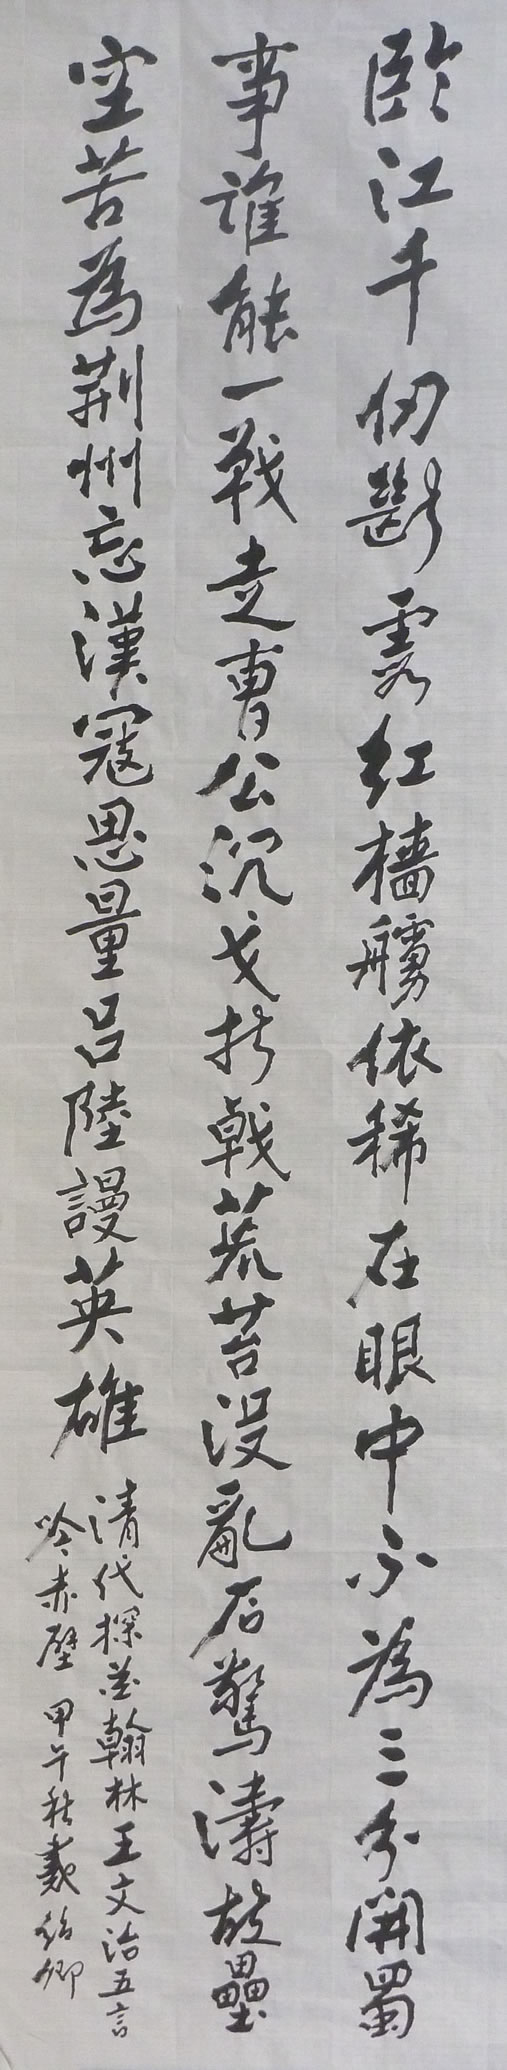 临江千仞断霞红樯艣依稀在眼中不為三分開蜀
事誰能一戰走曹公沉戈折戟荒苔没亂石驚濤故壘
空苦為荆州忘漢寇思量吕陸謾英雄
清代探花翰林王文治五言
吟赤壁 甲午秋義